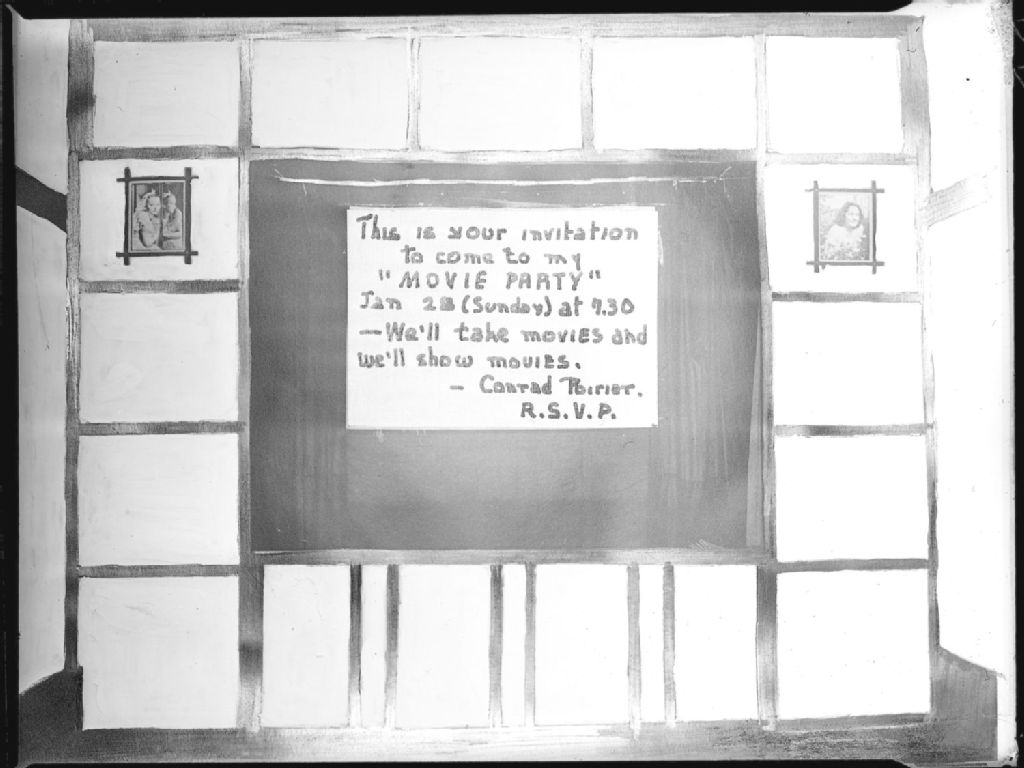 This is your invitation
to come to my
"MOVIE PARTY"
Jan 28 (Sunday) at 7.30
—We'll take movies and
we'll show movies.
- Conrad Poirier.
R.S.V.P.